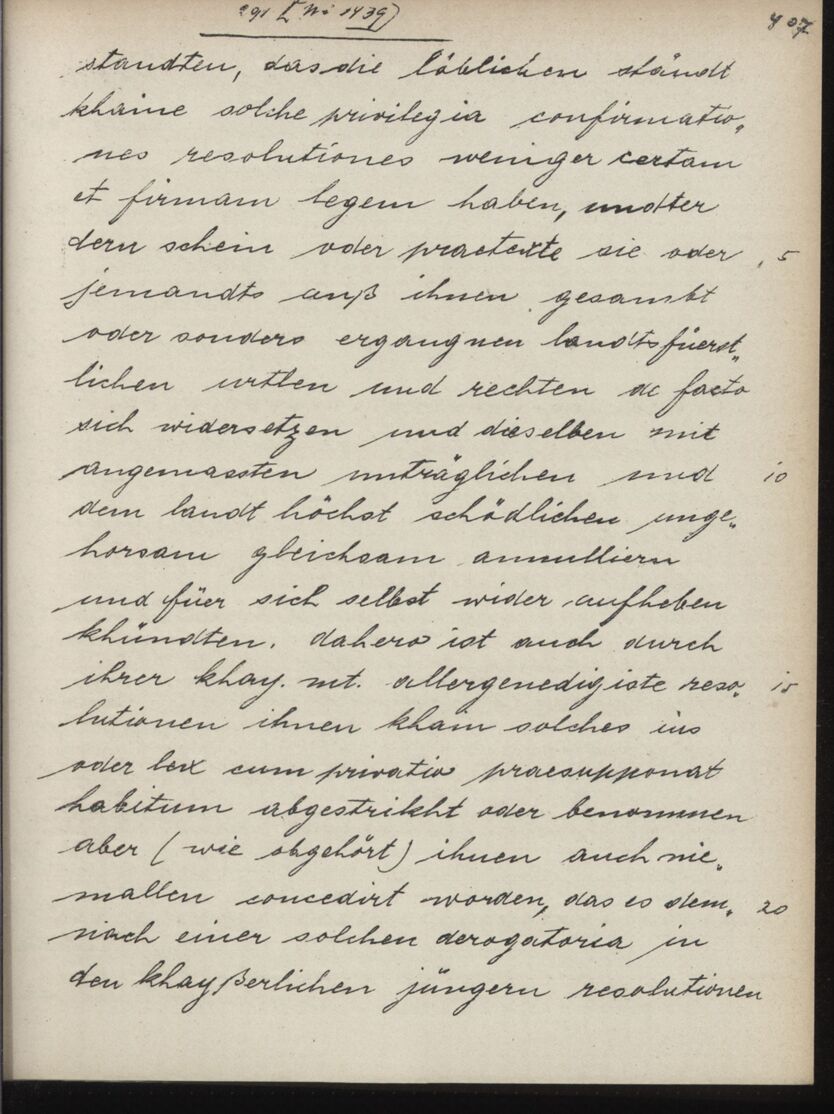 291 [Nr 1439] 407
standten, das die löblichen ständt
khaine solche privilegia confirmatio„
nes resolutiones weniger certam
et firmam legem haben, undter
dern schein oder praetexte sie oder 5
jemandts auß ihnen gesambt
oder sonders ergangnen landtsfüerst„
lichen urtlen und rechten de facto
sich widersetzen und dieselben mit
angemassten unträglichen und 10
dem landt höchst schödlichen unge„
horsam gleichsam annulliern
und füer sich selbst wider aufheben
khündten. dahero ist auch durch
ihrer khay. mt. allergenedigiste reso„ 15
lutionen ihnen khain solches ius
oder lex cum privatio praesupponat
habitum abgestrikht oder benommen
aber (wie obgehört) ihnen auch nie„
mallen concedirt worden, das es dem„ 20
nach einer solchen derogatoria in
den khayßerlichen jüngern resolutionen